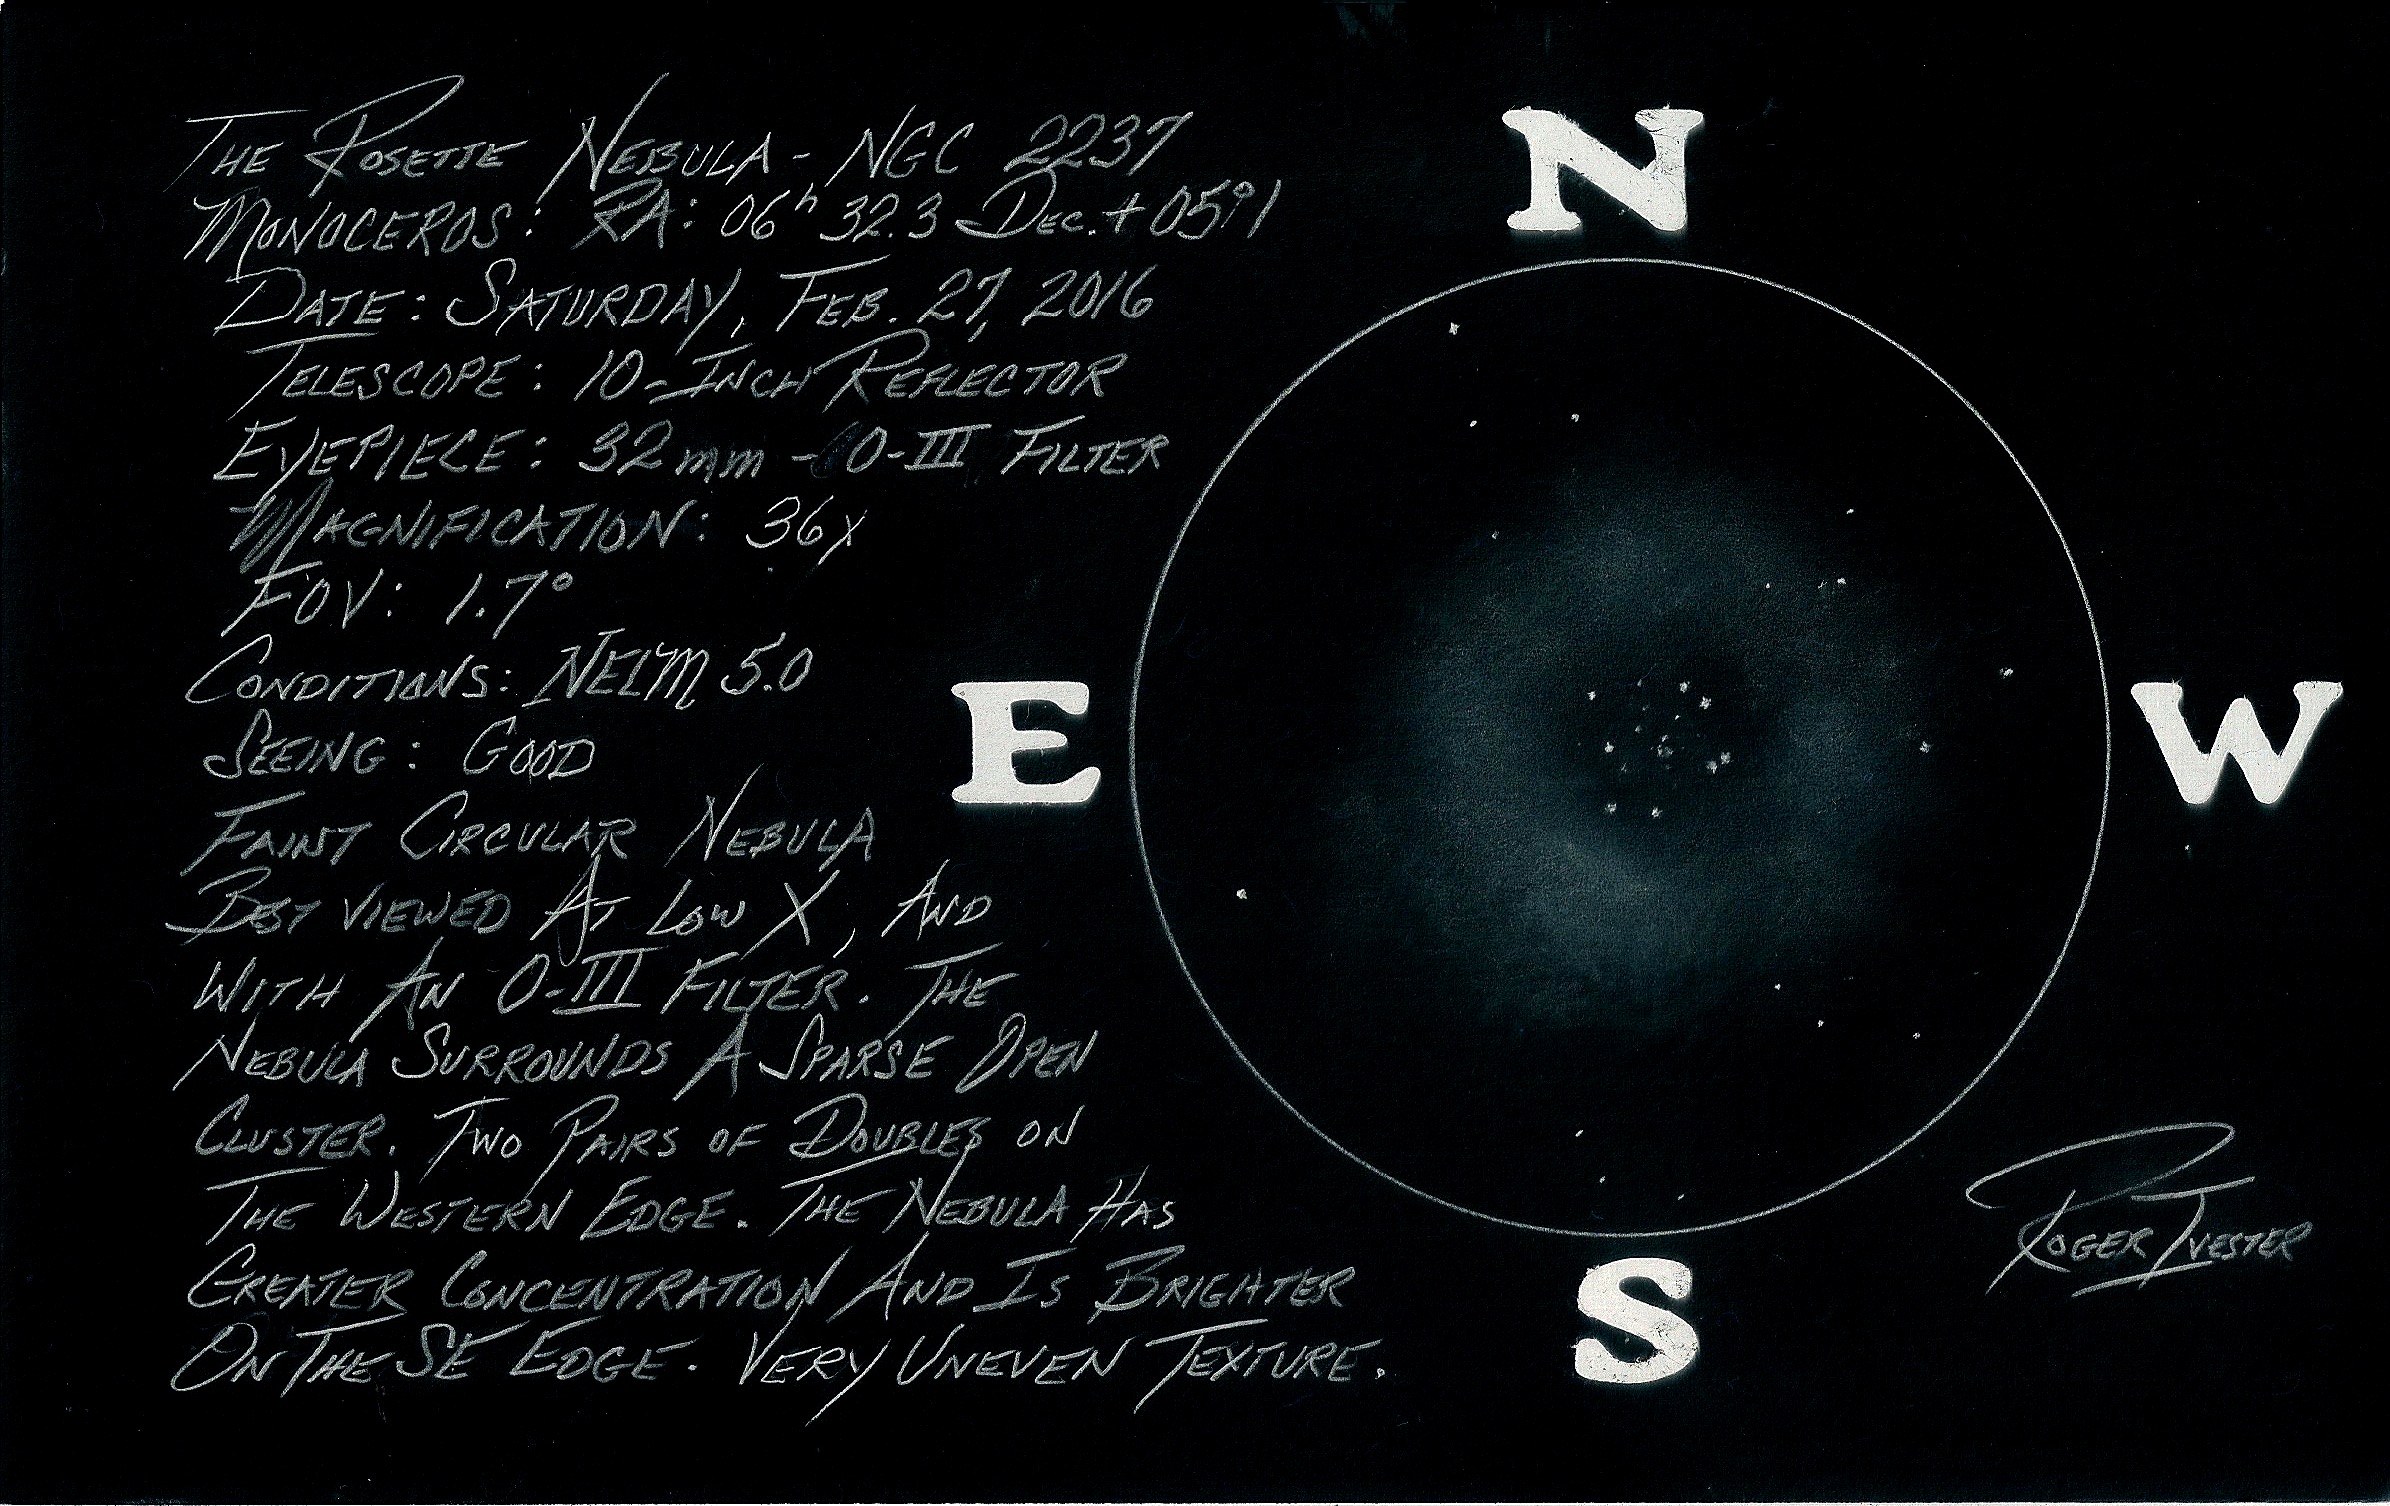 The Rosette Nebula - NGC 2237
Monoceros: RA: 06h 32.3 Dec. + 05°1
Date: Saturday, Feb. 27, 2016
Telescope: 10-Inch Reflector
Eyepiece: 32mm - O-III Filter
Magnification: 36x
FOV: 1.7°
Conditions: NELM 5.0
Seeing: Good
Faint Circular Nebula
Best viewed At Low X, And
With An O-III Filter. The
Nebula Surrounds A Sparse Open
Cluster. Two Pairs of Doubles on
The Western Edge. The Nebula Has
Greater Concentration And Is Brighter
On The SE Edge. Very Uneven Texture.
N
E
W
S
Roger Ivester